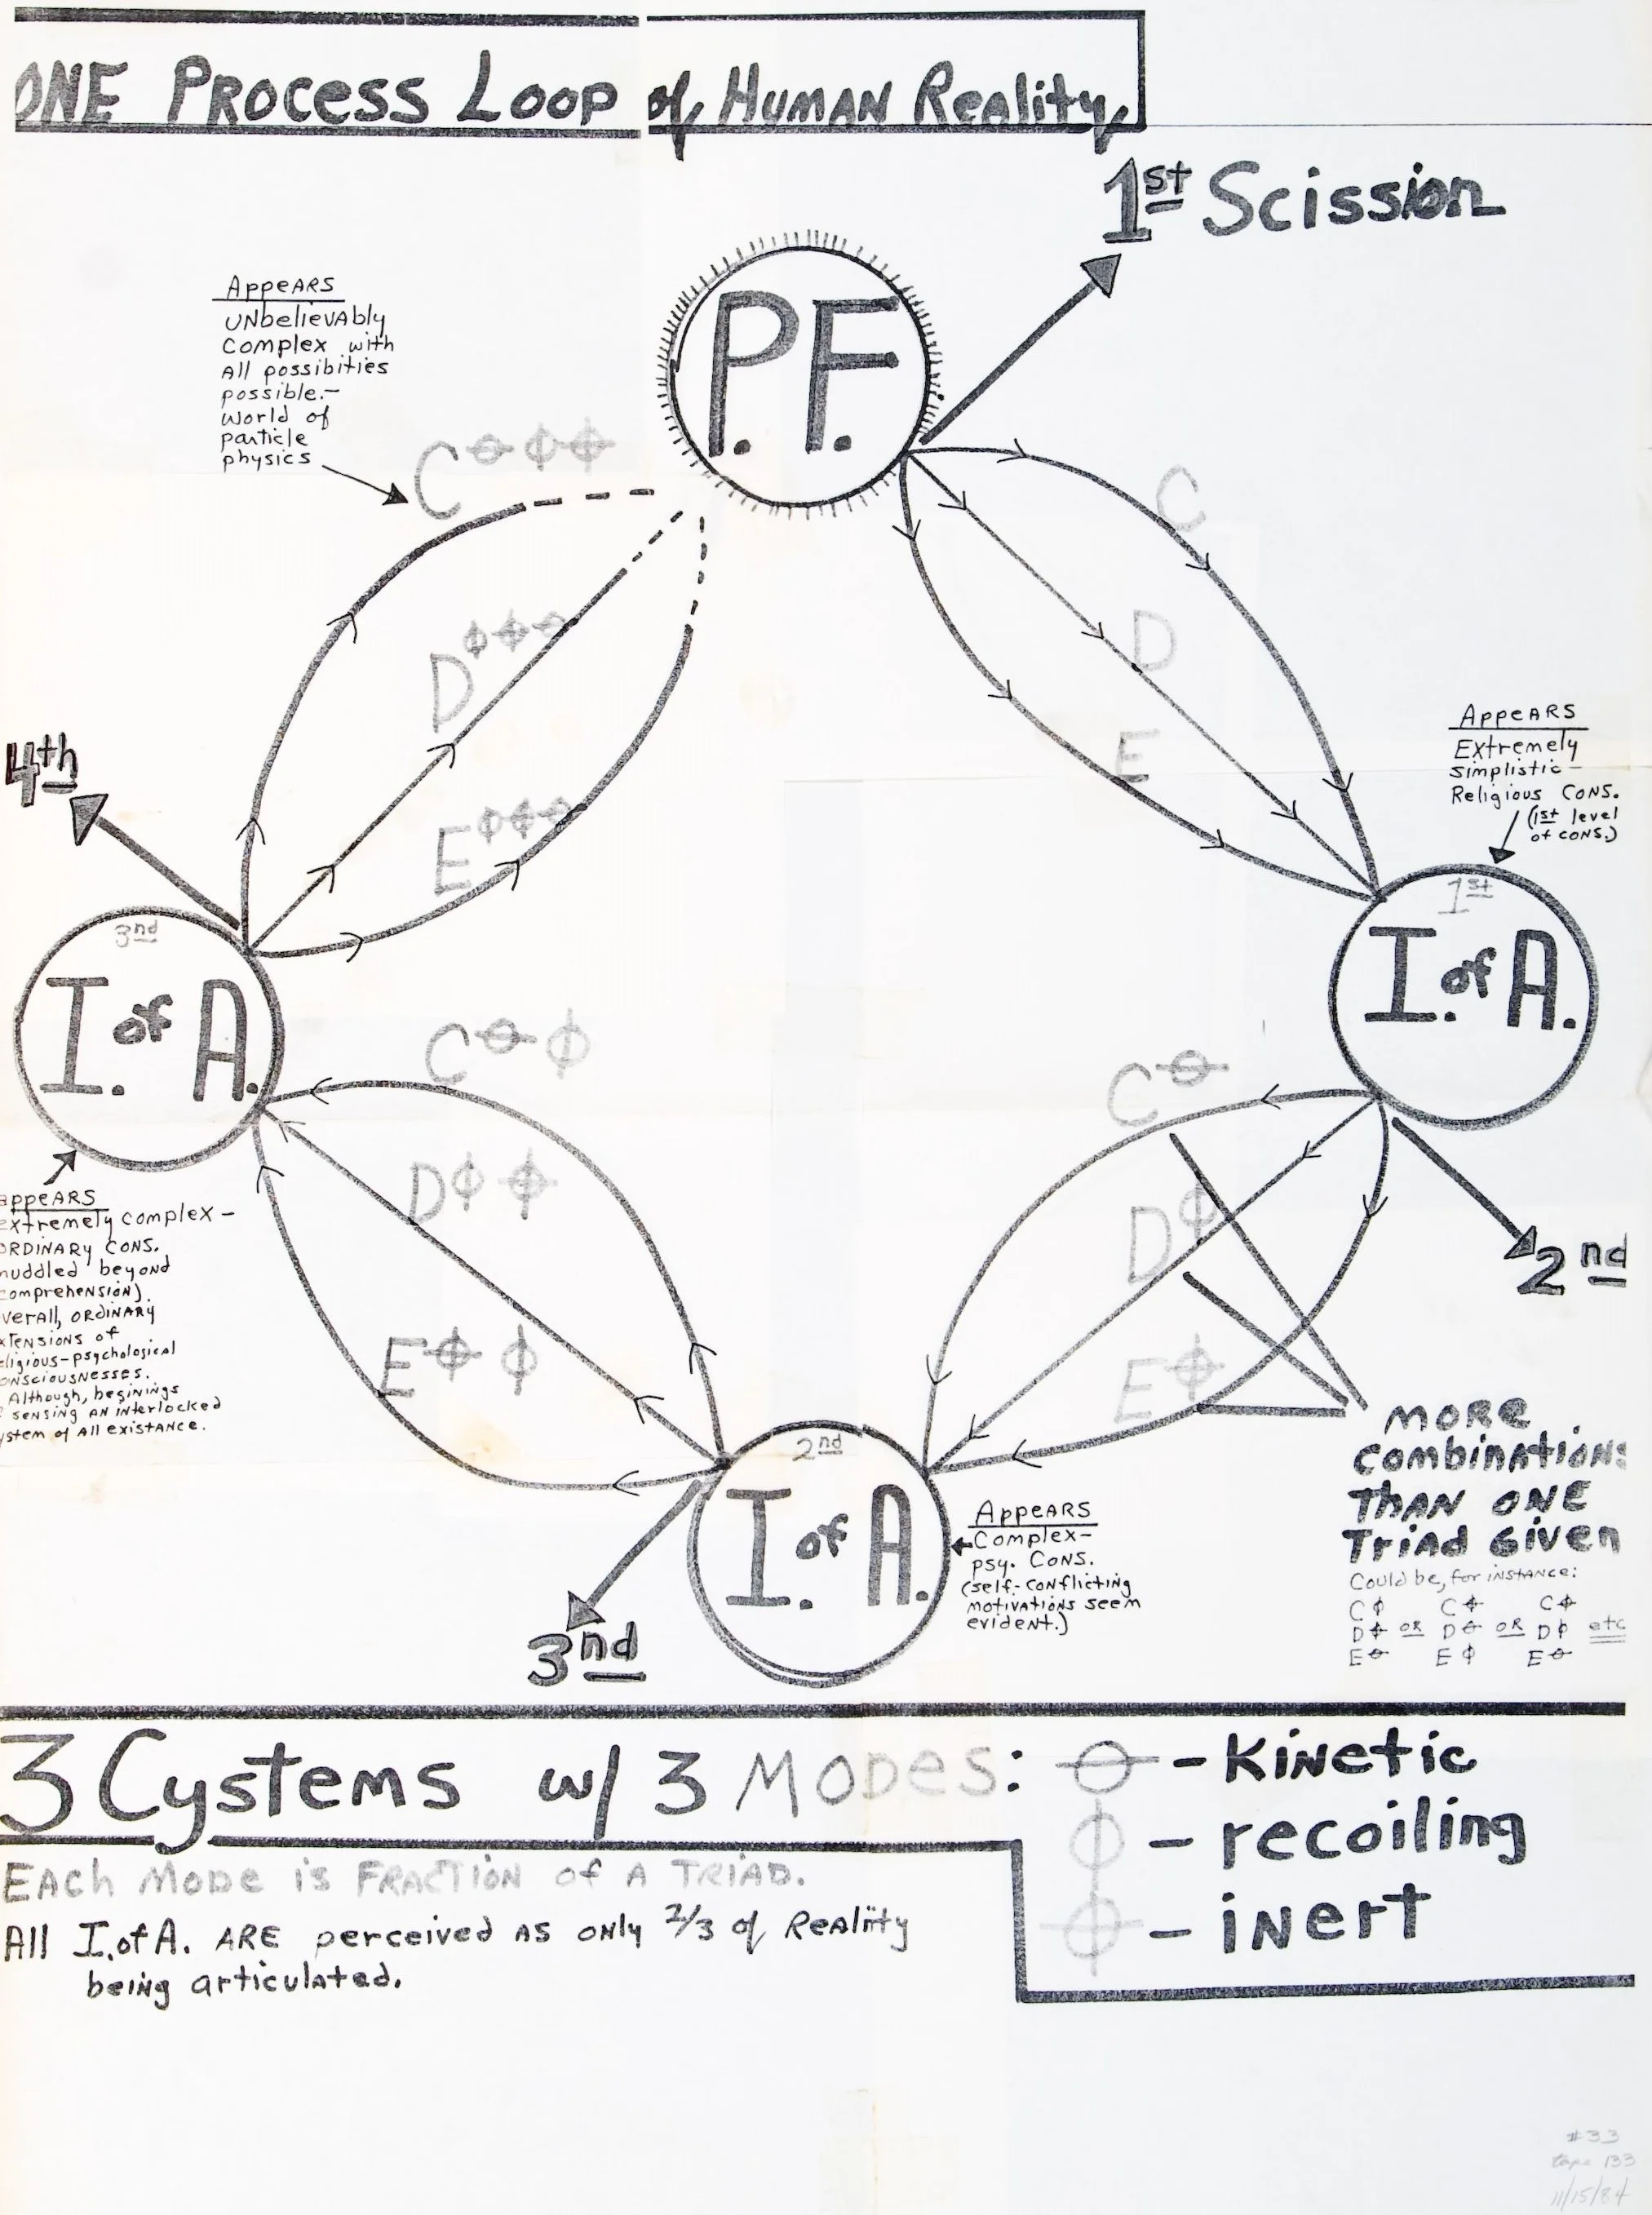 ONE Process Loop of Human Reality
1st Scission
P.F.
Appears
Unbelievably
complex with
All possibities
possible.-
World of
particle
physics
C ⦵ ⏀ ⏀
C
D
E
D ⏀ ⏀ ⦵
E ⏀ ⏀ ⦵
4th
Appears
Extremely
Simplistic-
Religious Cons.
(1st level
of cons.)
3nd
I. of A.
1st
I. of A.
C ⦵ ⏀
D ⏀ ⏀
E ⏀ ⏀
C ⦵
D ⏀
E ⏀
2nd
appears
extremely complex -
ORDINARY CONS.
muddled beyond
comprehension).
verall, ORDINARY
xtensions of
ligious-psychological
onsciousnesses.
Although, beginings
sensing AN interlocked
ystem of All existance.
2nd
I. of A.
3nd
Appears
Complex-
psy. Cons.
(self-conflicting
motivations seem
evident.)
More
Combinations
Than one
Triad Given
Could be, for instance:
C ⏀ C ⏀ C ⏀
D ⏀ or D ⦵ or D ⏀ etc
E ⦵ E ⏀ E ⦵
3 Cystems w/ 3 Modes:
⦵ - Kinetic
⏀ - recoiling
- inert
Each Mode is Fraction of a Triad.
All I. of A. are perceived as only 2/3 of Reality
being articulated.
#33
tape 133
11/15/84